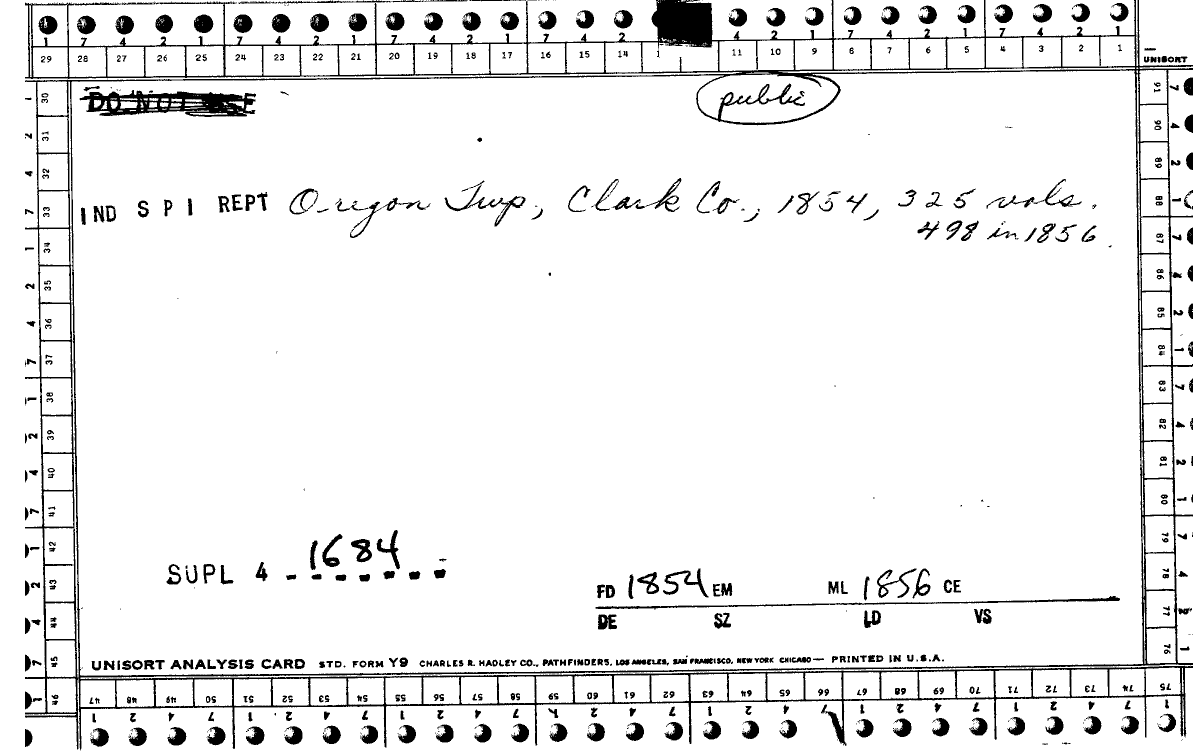 1 7 4 2 1 7 4 2 1 7 4 2 1 7 4 2 4 2 1 7 4 2 1 7 4 2 1
29 28 27 26 25 24 23 22 21 20 19 18 17 16 15 14 1 11 10 9 8 7 6 5 4 3 2 1
UNISORT
DO NOT USE
public
IND S P I REPT Oregon Twp., Clark Co., 1854, 325 vols.
498 in 1856.
SUPL 4 1684
FD 1854 EM ML 1856 CE
DE SZ LD VS
UNISORT ANALYSIS CARD STD. FORM Y9 CHARLES R. HADLEY CO., PATHFINDERS, LOS ANGELES, SAN FRANCISCO, NEW YORK CHICAGO — PRINTED IN U.S.A.
30 31 32 33 34 35 36 37 38 39 40 41 42 43 44 45 46
1 2 4 7 1 2 4 7 1 2 4 7 1 2 4 7 1
91 90 89 88 87 86 85 84 83 82 81 80 79 78 77 76
7 4 2 1 7 4 2 1 7 4 2 1 7 4 2 1
47 48 49 50 51 52 53 54 55 56 57 58 59 60 61 62 63 64 65 66 67 68 69 70 71 72 73 74 75
1 2 4 7 1 2 4 7 1 2 4 7 1 2 4 7 1 2 4 7 1 2 4 7 1 2 4 7 1